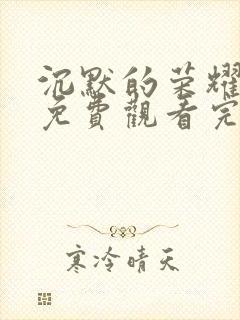 沉默的荣耀
免費觀看完
寒冷晴天